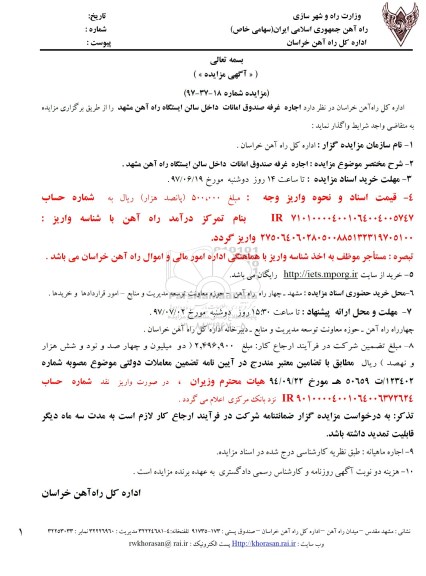 وزارت راه و شهر سازی
راه آهن جمهوری اسلامی ایران(سهامی خاص)
اداره کل راه آهن خراسان
تاریخ:
شماره :
پیوست :
بسمه تعالی
( « آگهی مزایده » )
(مزایده شماره ۱۸-۳۷-۹۷)
اداره کل راه‌آهن خراسان در نظر دارد اجاره غرفه صندوق امانات داخل سالن ایستگاه راه آهن مشهد را از طریق برگزاری مزایده
به متقاضی واجد شرایط واگذار نماید :
۱- نام سازمان مزایده گزار : اداره کل راه آهن خراسان .
۲- شرح مختصر موضوع مزایده : اجاره غرفه صندوق امانات داخل سالن ایستگاه راه آهن مشهد .
۳- مهلت خرید اسناد مزایده : تا ساعت ۱۴ روز دوشنبه مورخ ۹۷/۰۶/۱۹ .
۴- قیمت اسناد و نحوه واریز وجه : مبلغ ۵۰۰,۰۰۰ (پانصد هزار) ریال به شماره حساب
IR ۷۱۰۱۰۰۰۰۴۰۰۱۰۶۴۰۰۴۰۰۵۷۴۷ بنام تمرکز درآمد راه آهن با شناسه واریز :
۲۷۵۰۶۴۰۶۰۲۸۰۵۰۰۸۸۵۱۳۳۳۱۹۷۰۵۱۰۰ واریز گردد.
تبصره : مستأجر موظف به اخذ شناسه واریز با هماهنگی اداره امور مالی و اموال راه آهن خراسان می باشد .
۵- خرید از سایت http://iets.mporg.ir رایگان می باشد.
۶-محل خرید حضوری اسناد مزایده : مشهد ـ چهار راه راه آهن – حوزه معاونت توسعه مدیریت و منابع – امور قراردادها و خریدها .
۷- مهلت و محل ارائه پیشنهاد : تا ساعت ۱۵:۳۰ روز دوشنبه مورخ ۹۷/۰۷/۰۲ .
چهارراه راه آهن ـ حوزه معاونت توسعه مدیریت و منابع ـ دبیرخانه اداره کل راه آهن خراسان .
۸- مبلغ تضمین شرکت در فرآیند ارجاع کار: مبلغ ۲,۴۹۶,۹۰۰ ( دو میلیون و چهار صد و نود و شش هزار
و نهصد ) ریال مطابق با تضامین معتبر مندرج در آیین نامه تضمین معاملات دولتی موضوع مصوبه شماره
۱۲۳۴۰۲/ت ۵۰۶۵۹ هـ مورخ ۹۴/۰۹/۲۲ هیات محترم وزیران ، در صورت واریز نقد شماره حساب
IR ۹۰۱۰۰۰۰۴۰۰۱۰۶۴۰۰۶۳۷۲۶۲۴ نزد بانک مرکزی اعلام می گردد .
تذکر: به درخواست مزایده گزار ضمانتنامه شرکت در فرآیند ارجاع کار لازم است به مدت سه ماه دیگر
قابلیت تمدید داشته باشد.
۹- اجاره ماهیانه : طبق نظریه کارشناسی درج شده در اسناد مزایده.
۱۰- هزینه دو نوبت آگهی روزنامه و کارشناس رسمی دادگستری به عهده برنده مزایده است .
اداره کل راه‌آهن خراسان
نشانی : مشهد مقدس –میدان راه آهن –اداره کل راه آهن خراسان –صندوق پستی : ۱۷۳-۹۱۷۳۵ تلفنخانه:۴-۳۲۲۲۴۶۸۱ مدیریت : ۳۲۲۲۶۹۶۰ نمابر : ۳۲۲۵۳۰۳۳
وب سایت : Http://khorasan.rai.ir پست الکترونیک : rwkhorasan@ rai.ir
۱